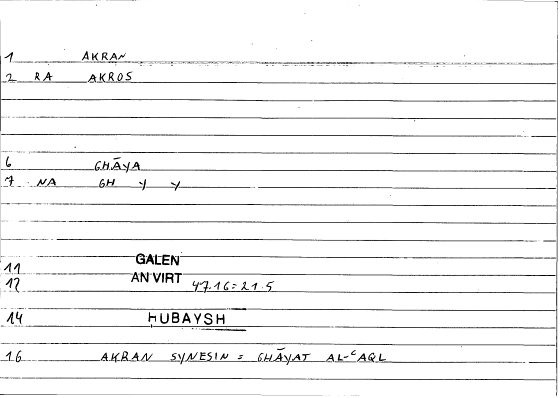 1 AKRAN
2 RA AKROS
6 GHĀYA
7 NA GH Y Y
11 GALEN
12 AN VIRT 47.16=21.5
14 HUBAYSH
16 AKRAN SYNESIN = GHĀYAT AL-ᶜAQL